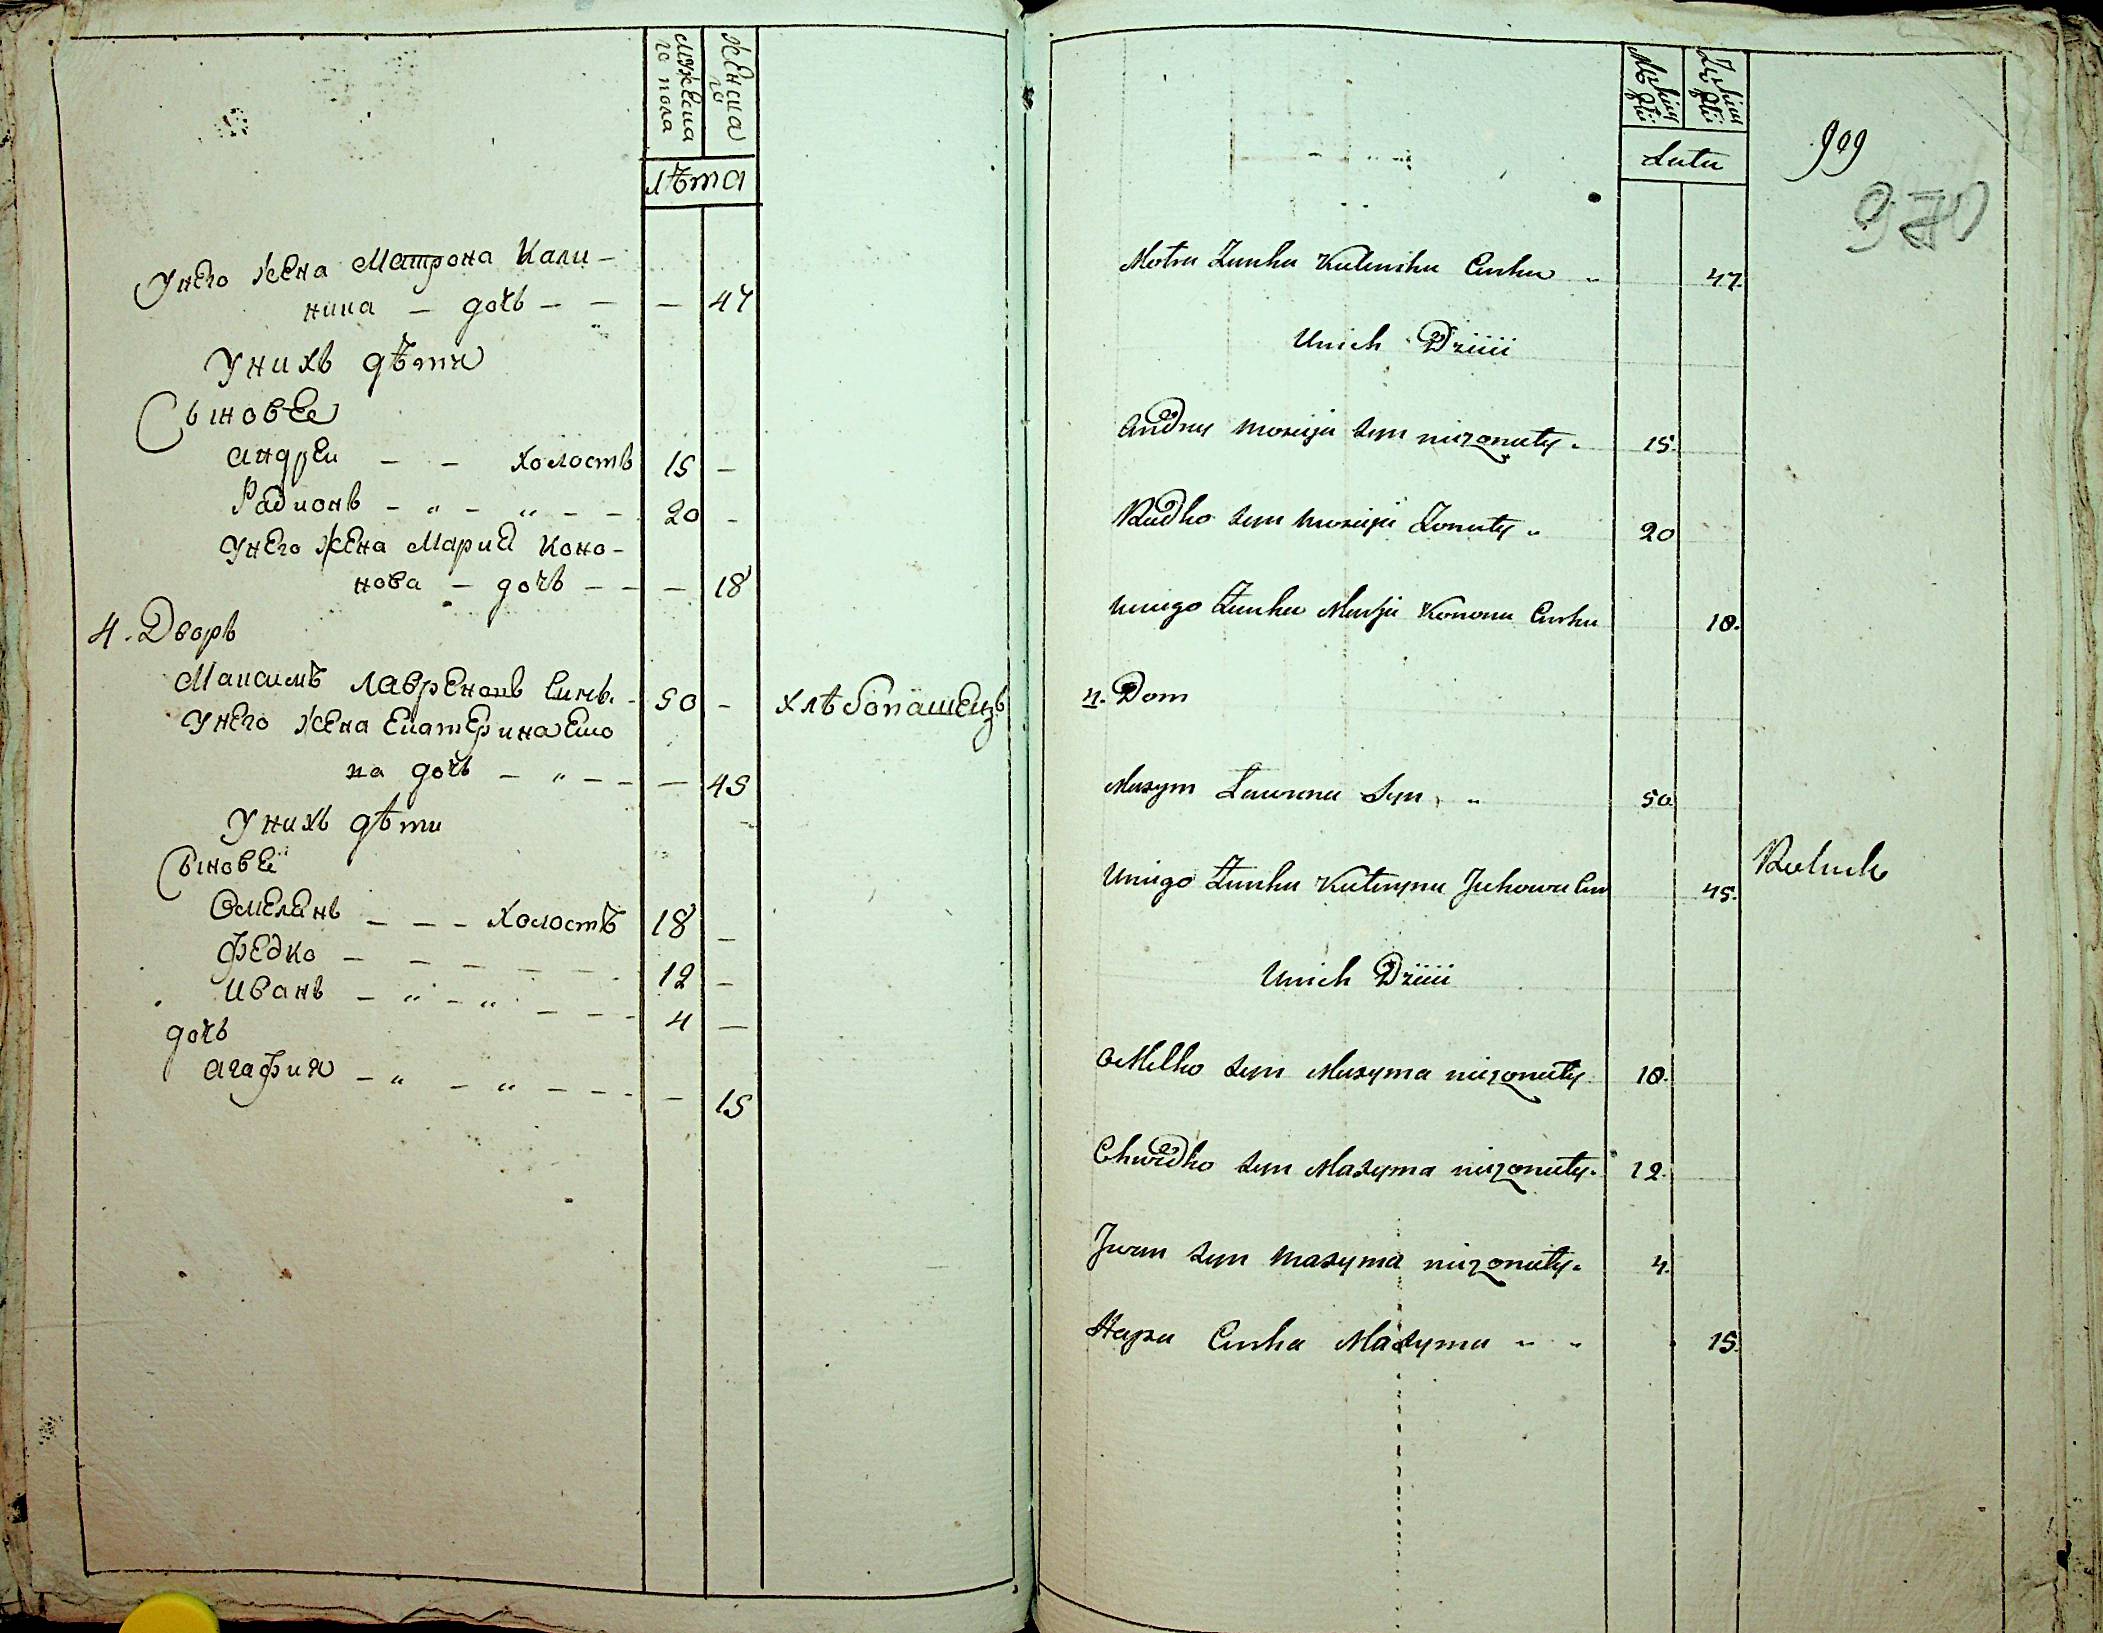 мужеска
го пола
женска
го
лѣта
У него жена Матрона Кали-
нина — дочь — — — 47
У нихъ дѣти
Сыновье
Андреи — — холостъ 15 —
Радионъ — „ — „ — — 20 —
У него жена Мариа Коно-
нова — дочь — — — 18
4. Дворъ
Максимъ Лавреновъ синъ. - 50 — хлѣбопашецъ
У него жена Екатерина
на дочь — „ — — — 45
У нихъ дѣти
Сыновеи
Омелянъ — — — холостъ 18 —
Федко — — — — — — 12 —
Иванъ — „ — „ — — — 4 —
дочь
Агафия — „ — „ — — — — 15
Męskiey
Płci
Żeńskiey
Płci
Lata
909
970
Motra Żonka Kalinika Curka „ 47.
Unich Dzieci
Andruy syn nieżonaty. 15.
Radko syn Żonaty „ 20
Uniego Żonka Marja Konona Curka 18.
4. Dom
Maxym Laurena Syn „ 50.
Uniego Żonka Kateryna Cur 45. Rolnik
Unich Dzieci
oMelko syn Maxyma nieżonaty 18.
Chwedko syn Maxyma nieżonaty. 12.
Jwan syn Maxyma nieżonaty. 4.
Hapa Curka Maxyma „ „ 15.